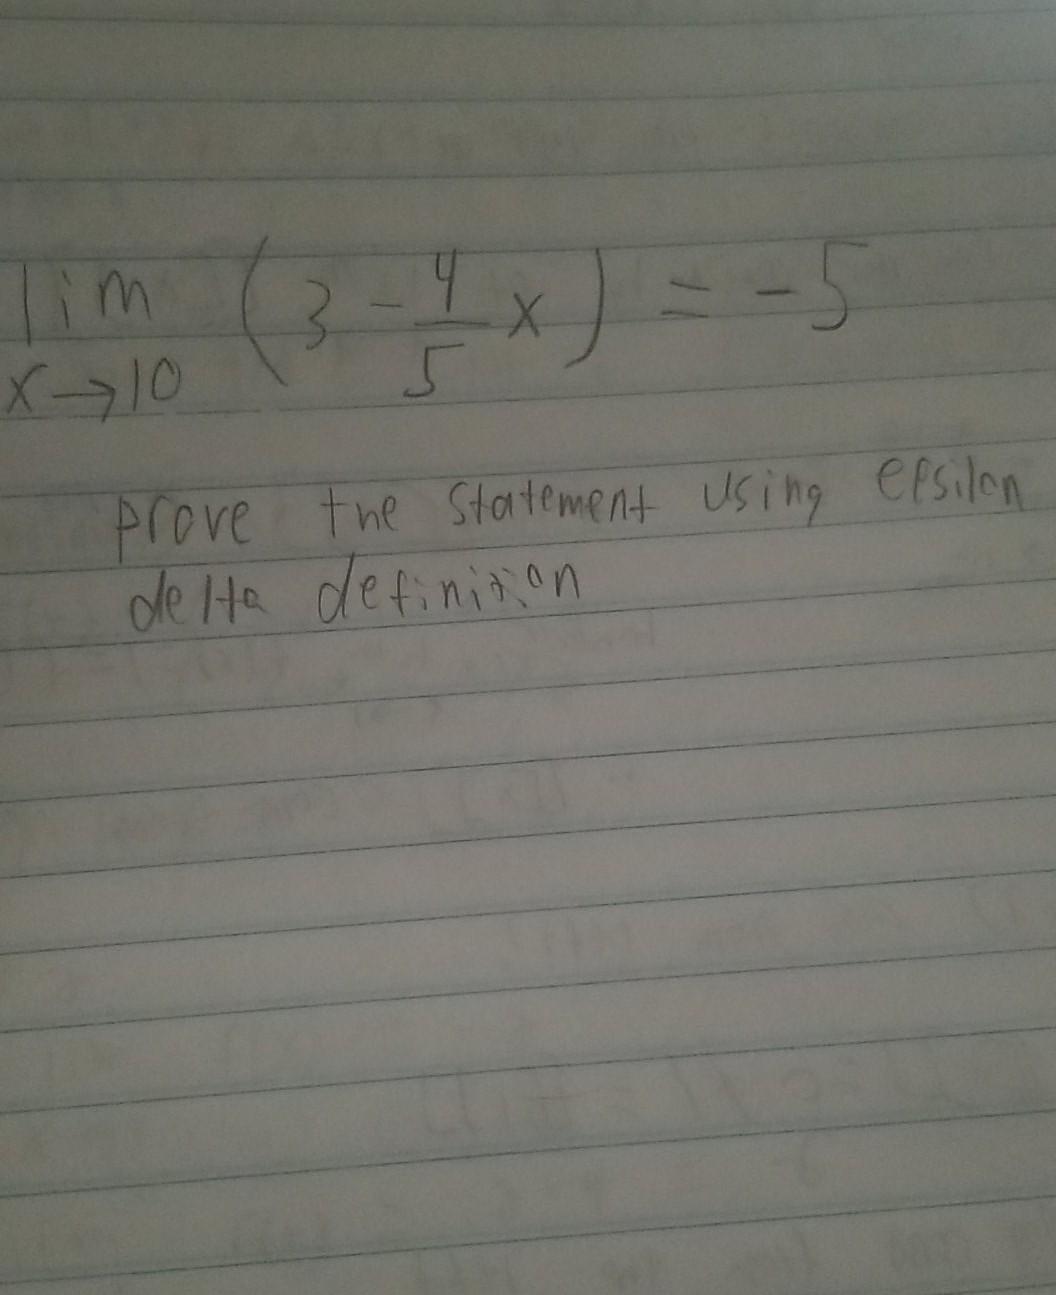 lim (3 - 4/5 x) = -5
x→10
prove the statement using epsilon
delta definition